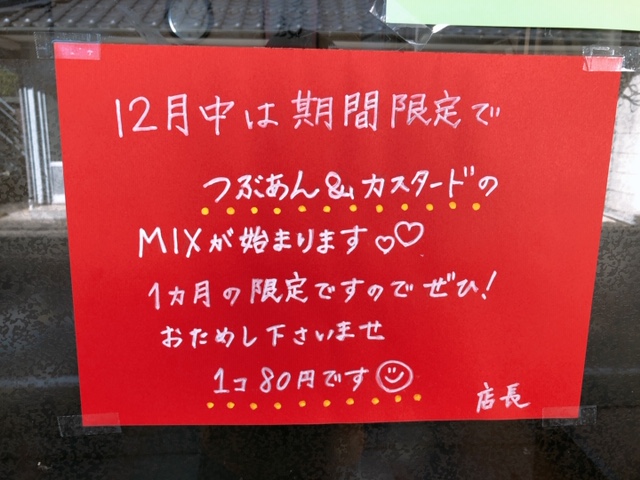 12月中は期間限定で
つぶあん&カスタードの
MIXが始まります♡♡
1カ月の限定ですのでぜひ!
おためし下さいませ
1コ80円です☺
店長